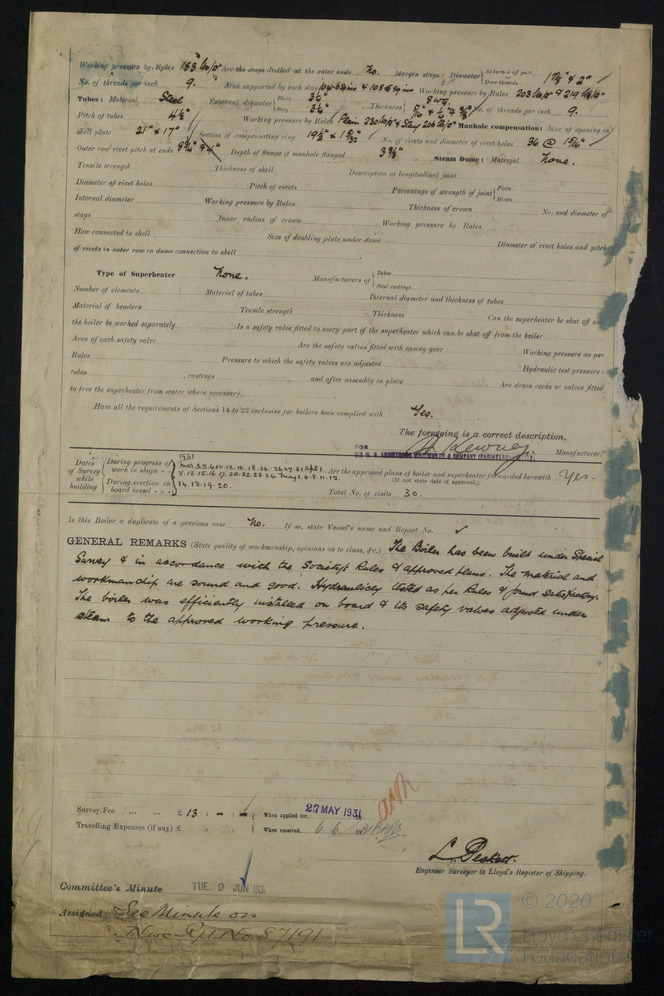 Working pressure by Rules 183 lb/□" Are the stays drilled at the outer ends No. Margin stays: Diameter { At turned off part, or Over threads 1 7/8" & 2"
No. of threads per inch 9. Area supported by each stay Working pressure by Rules 203 lb/□" & 219 lb/□"
Tubes: Material Steel External diameter { Plain 3¼" Stay 3¼" Thickness { 8 WG No. of threads per inch 9.
Pitch of tubes 4½" Working pressure by Rules Plain 230 lb/□" Stay 206 lb/□" Manhole compensation: Size of opening in
shell plate 21" x 17" Section of compensating ring No. of rivets and diameter of rivet holes 36 @
Outer row rivet pitch at ends Depth of flange if manhole flanged Steam Dome: Material None.
Tensile strength Thickness of shell Description of longitudinal joint
Diameter of rivet holes Pitch of rivets Percentage of strength of joint { Plate Rivets
Internal diameter Working pressure by Rules Thickness of crown No. and diameter of
stays Inner radius of crown Working pressure by Rules
How connected to shell Size of doubling plate under dome Diameter of rivet holes and pitch
of rivets in outer row in dome connection to shell
Type of Superheater None. Manufacturers of { Tubes Steel castings
Number of elements Material of tubes Internal diameter and thickness of tubes
Material of headers Tensile strength Thickness Can the superheater be shut off and
the boiler be worked separately Is a safety valve fitted to every part of the superheater which can be shut off from the boiler
Area of each safety valve Are the safety valves fitted with easing gear Working pressure as per
Rules Pressure to which the safety valves are adjusted Hydraulic test pressure:
tubes castings and after assembly in place Are drain cocks or valves fitted
to free the superheater from water where necessary
Have all the requirements of Sections 14 to 22 inclusive for boilers been complied with Yes.
The foregoing is a correct description,
FOR
Manufacturer.
Dates of Survey while building { During progress of work in shops - - 1931
During erection on board vessel - - - 14.18.19.20.
Are the approved plans of boiler and superheater forwarded herewith Yes.
(If not state date of approval.)
Total No. of visits 30
Is this Boiler a duplicate of a previous case No. If so, state Vessel's name and Report No.
GENERAL REMARKS (State quality of workmanship, opinions as to class, &c.) The Boiler has been built under Special
Survey & in accordance with the Society's Rules & approved plans. The material and
workmanship are sound and good. Hydraulically tested as per Rules & found satisfactory.
The boiler was efficiently installed on board & its safety valves adjusted under
steam to the approved working pressure.
Survey Fee ... ... £ 13 : - : - When applied for, 27 MAY 1931
Travelling Expenses (if any) £ : : When received, 6.6.
Engineer Surveyor to Lloyd's Register of Shipping.
Committee's Minute TUE. 9 JUN 1931
Assigned See Minute on
Nwc Rpt. No. 87191
LR © 2020
Lloyd's Register
Foundation